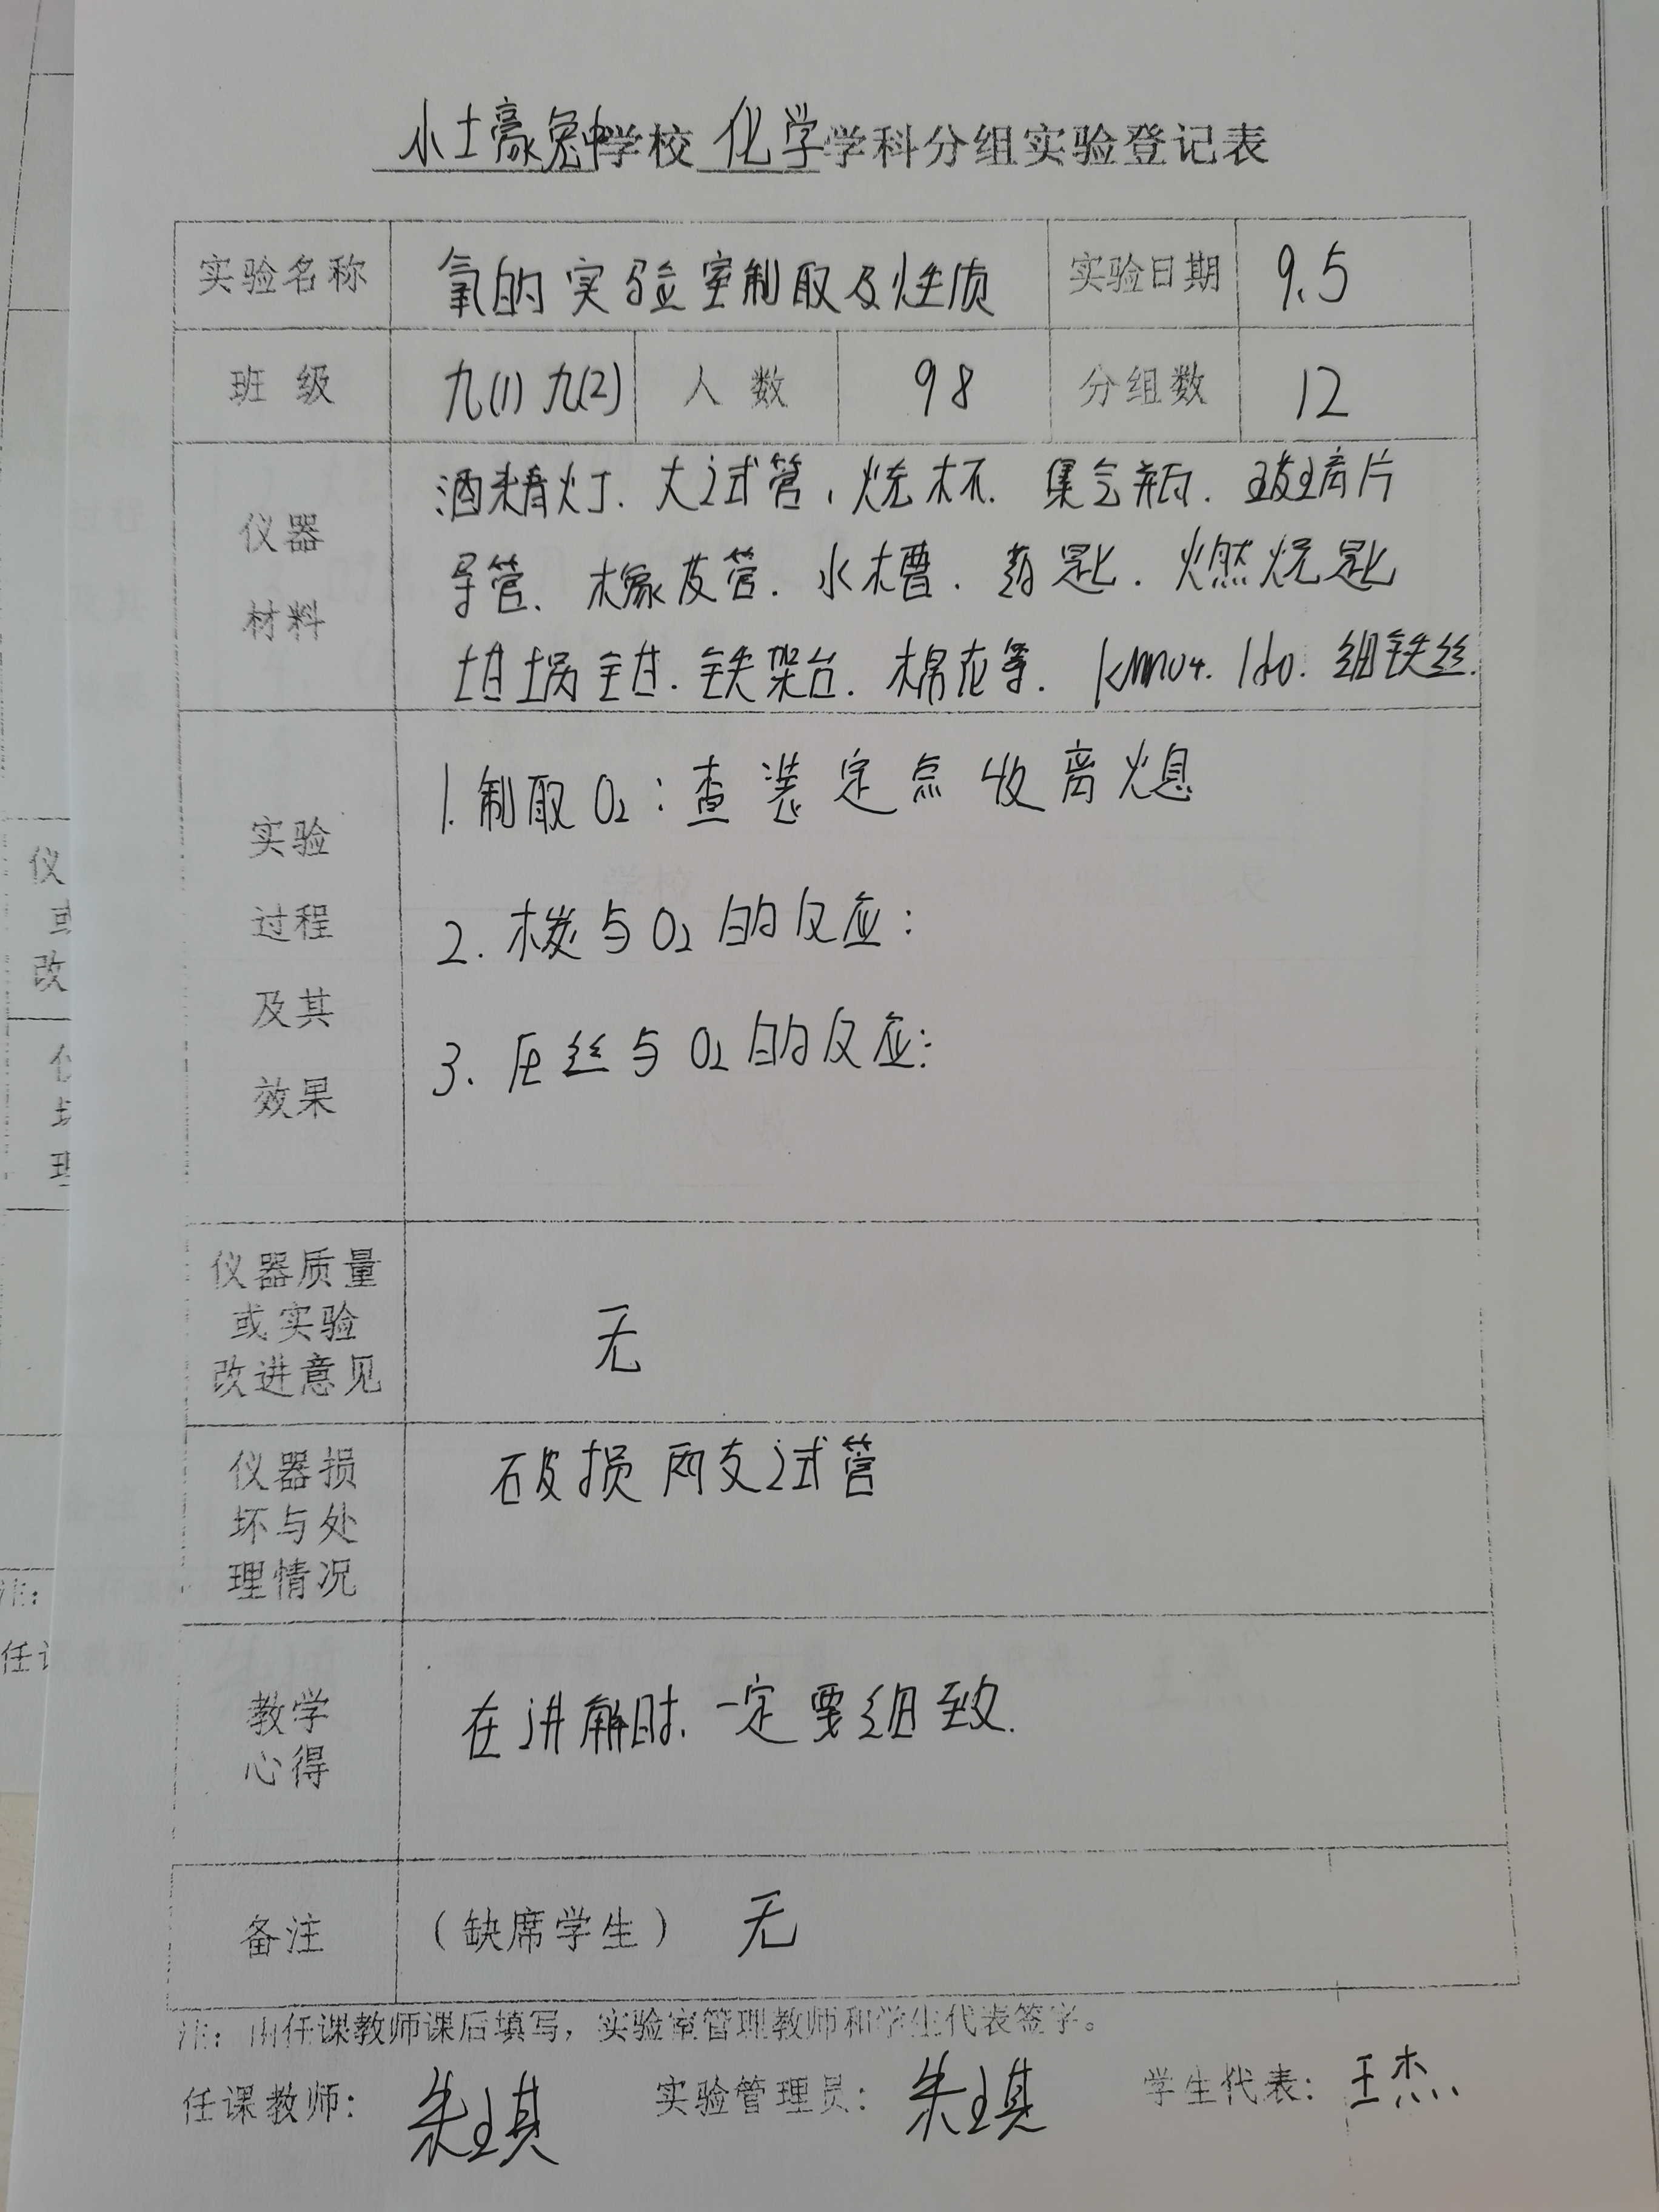 小土豪兔中学校 化学学科分组实验登记表
实验名称 氧的实验室制取及性质 实验日期 9.5
班级 九(1) 九(2) 人数 98 分组数 12
仪器
材料
酒精灯. 大试管, 烧杯. 集气瓶. 玻璃片
导管. 橡皮管. 水槽. 药匙. 燃烧匙
坩埚钳. 铁架台. 棉花等. KMnO4. 细铁丝.
实验
过程
及其
效果
1. 制取O2: 查装定点收离熄
2. 木炭与O2的反应:
3. 丝与O2的反应:
仪器质量
或实验
改进意见
无
仪器损
坏与处
理情况
破损两支试管
教学
心得
在讲解时. 一定要细致.
备注 (缺席学生) 无
注: 由任课教师课后填写, 实验室管理教师和学生代表签字。
任课教师: 朱琪 实验管理员: 朱琪 学生代表: 王杰
仪
或
改
仪
坏
理
注:
任